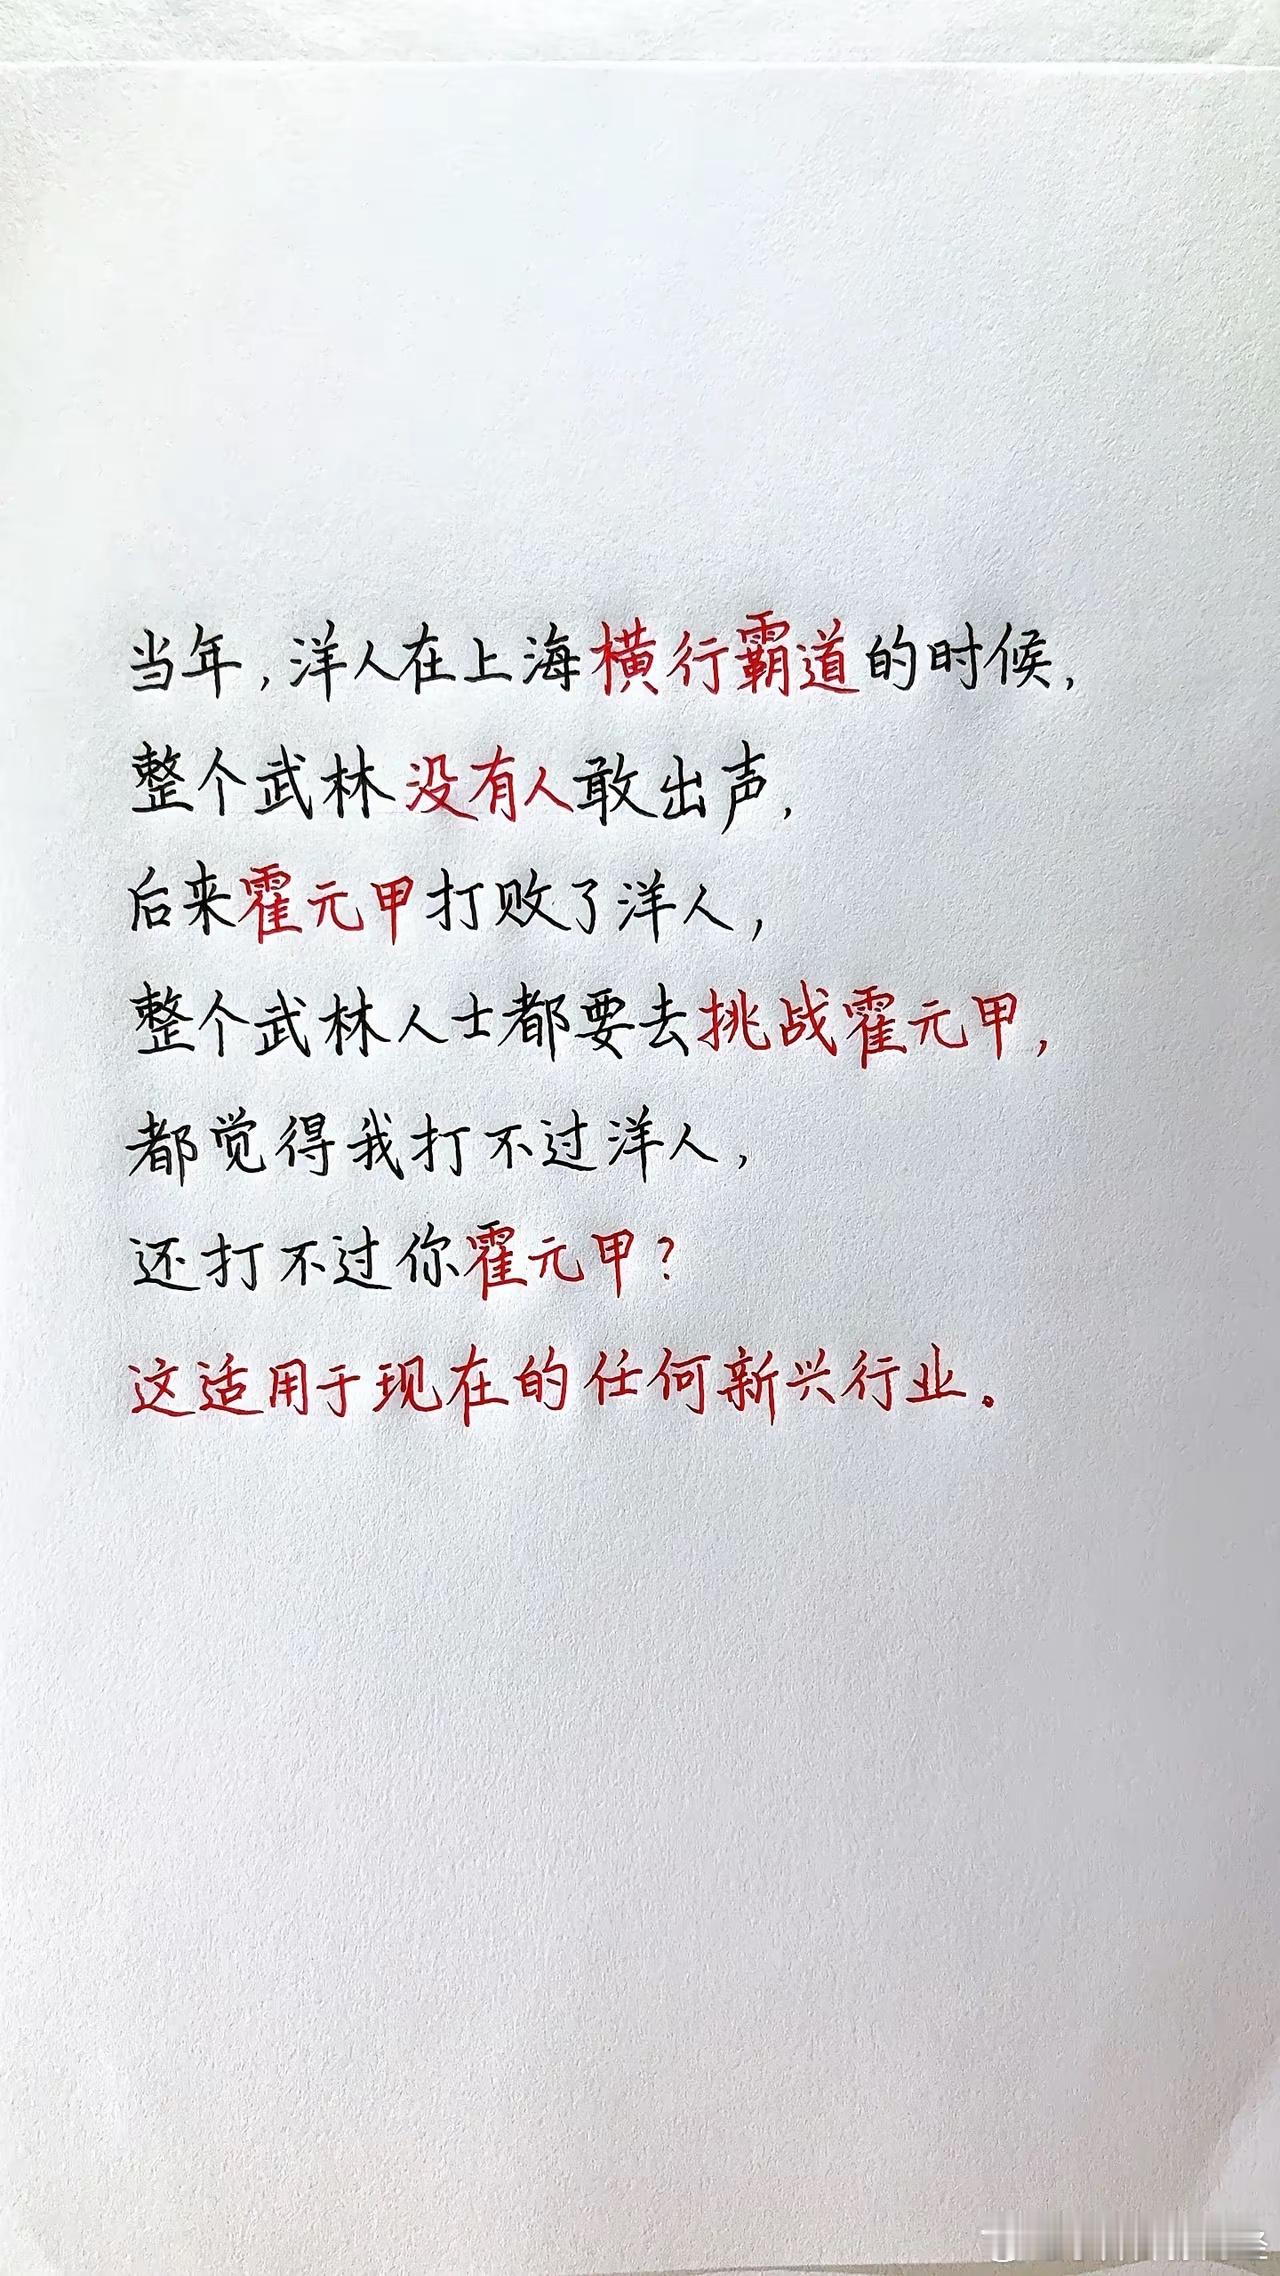 当年,洋人在上海横行霸道的时候,
整个武林没有人敢出声,
后来霍元甲打败了洋人,
整个武林人士都要去挑战霍元甲,
都觉得我打不过洋人,
还打不过你霍元甲?
这适用于现在的任何新兴行业。